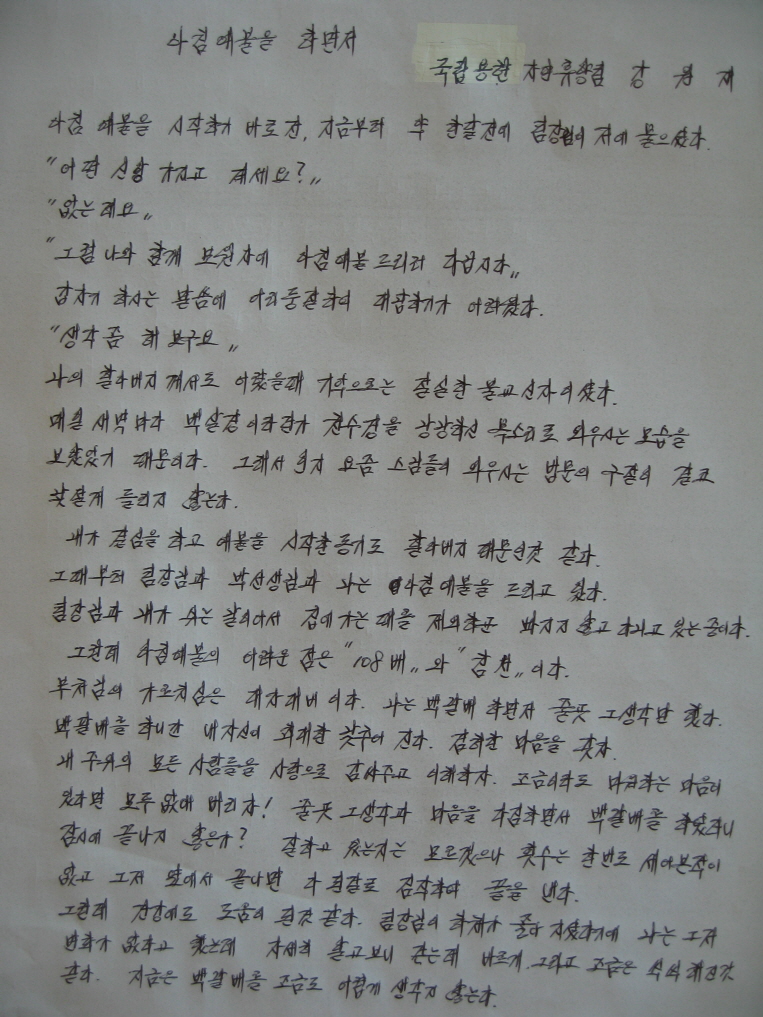 아침 예불을 하면서
국립용현 자연휴양림 강 원 재
아침 예불을 시작하기 바로 전, 지금부터 약 한달전에 팀장님이 저에 물으셨다.
"어떤 신앙 가지고 계세요?"
"없는데요"
"그럼 나와 함께 보원사에 아침예불 드리러 다닙시다"
갑자기 하시는 말씀에 어리둥절하여 대답하기가 어려웠다.
"생각 좀 해 보구요"
나의 할아버지께서도 어렸을때 기억으로는 절실한 불교신자이셨다.
매일 새벽마다 백살경이라던가 천수경을 낭랑하신 목소리로 외우시는 모습을
보았었기 때문이다. 그래서 인지 요즘 스님들이 외우시는 법문의 구절이 결코
낯설게 들리지 않는다.
내가 결심을 하고 예불을 시작한 동기도 할아버지 때문인것 같다.
그때부터 팀장님과 박선생님과 나는 아침예불을 드리고 있다.
팀장님과 내가 쉬는 날이어서 집에 가는 때를 제외하곤 빠지지 않고 다니고 있는 중이다.
그런데 아침예불의 어려운 점은 "108배"와 "참선"이다.
부처님의 가르치심은 대자대비 이다. 나는 백팔배 하면서 줄곳 그생각만 했다.
백팔배를 하니간 내자신이 최대한 낮추어 진다. 겸허한 마음을 갖자.
내 주위의 모든 사람들을 사랑으로 감싸주고 이해하자. 조금이라도 미워하는 마음이
있다면 모두 없애 버리자! 줄곳 그생각과 마음을 다짐하면서 백팔배를 하였더니
금시에 끝나지 않은가? 잘하고 있는지는 모르겠으나 횟수는 한번도 세어본적이
없고 그저 앞에서 끝나면 다 된걸로 짐작하여 끝을 낸다.
그런데 건강에도 도움이 된것 같다. 팀장님이 하체가 좋아 지셨다기에 나는 그저
변화가 없다고 했는데 자세히 알고보니 걷는데 바르게 그리고 조금은 씩씩해진것
같다. 지금은 백팔배를 조금도 어렵게 생각지 않는다.